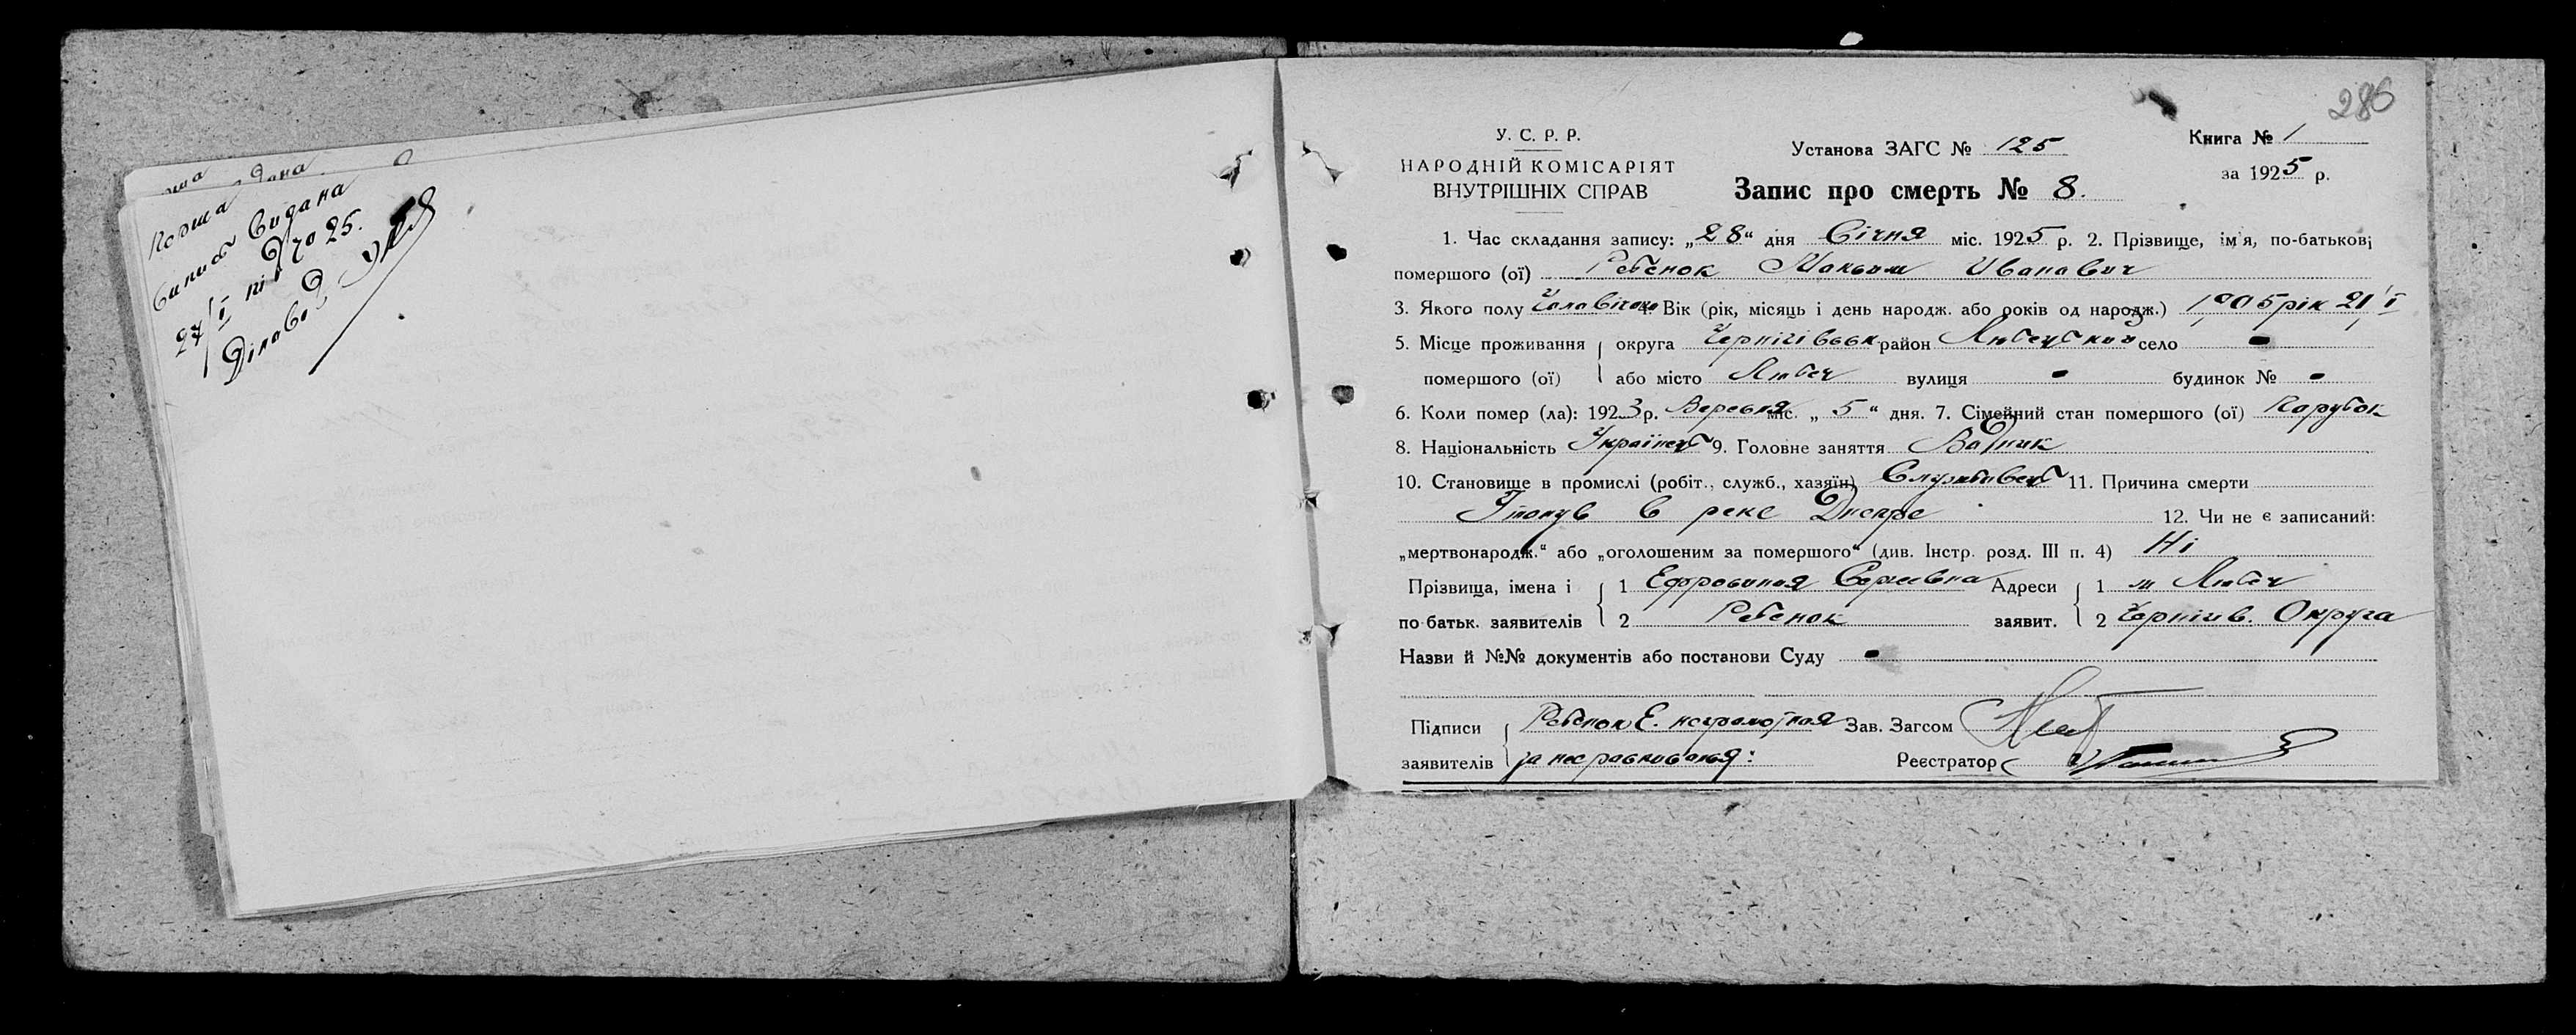 Копия
виписъ видана
27/I під № 25.
Діловод
286
У. С. Р. Р.
НАРОДНІЙ КОМІСАРІЯТ
ВНУТРІШНІХ СПРАВ
Установа ЗАГС № 125
Книга № 1
за 1925 р.
Запис про смерть № 8.
1. Час складання запису: „28“ дня Січня міс. 1925 р. 2. Прізвище, ім'я, по-батькові
помершого (ої) Ребенок Максим Иванович
3. Якого полу Чоловічого 4. Вік (рік, місяць і день народж. або років од народж.) 1905 рік 21/I
5. Місце проживання помершого (ої) округа Чернігівськ район Любецький село -
або місто Любеч вулиця - будинок № -
6. Коли помер (ла): 1923 р. Вересня міс. „5“ дня. 7. Сімейний стан помершого (ої) Парубок
8. Національність Українець 9. Головне заняття Водник
10. Становище в промислі (робіт., служб., хазяїн) Службовець 11. Причина смерти
Утонув в реке Днепре 12. Чи не є записаний:
„мертвонародж.“ або „оголошеним за помершого“ (див. Інстр. розд. III п. 4) Ні
Прізвища, імена і по-батьк. заявителів 1 Ефросиния Сергеевна Адреси заявит. 1 м Любеч
2 Ребенок 2 Чернігів. Округа
Назви й №№ документів або постанови Суду -
Підписи заявителів Ребенок Е. неграмотная Зав. Загсом
за нее расписался: Реєстратор